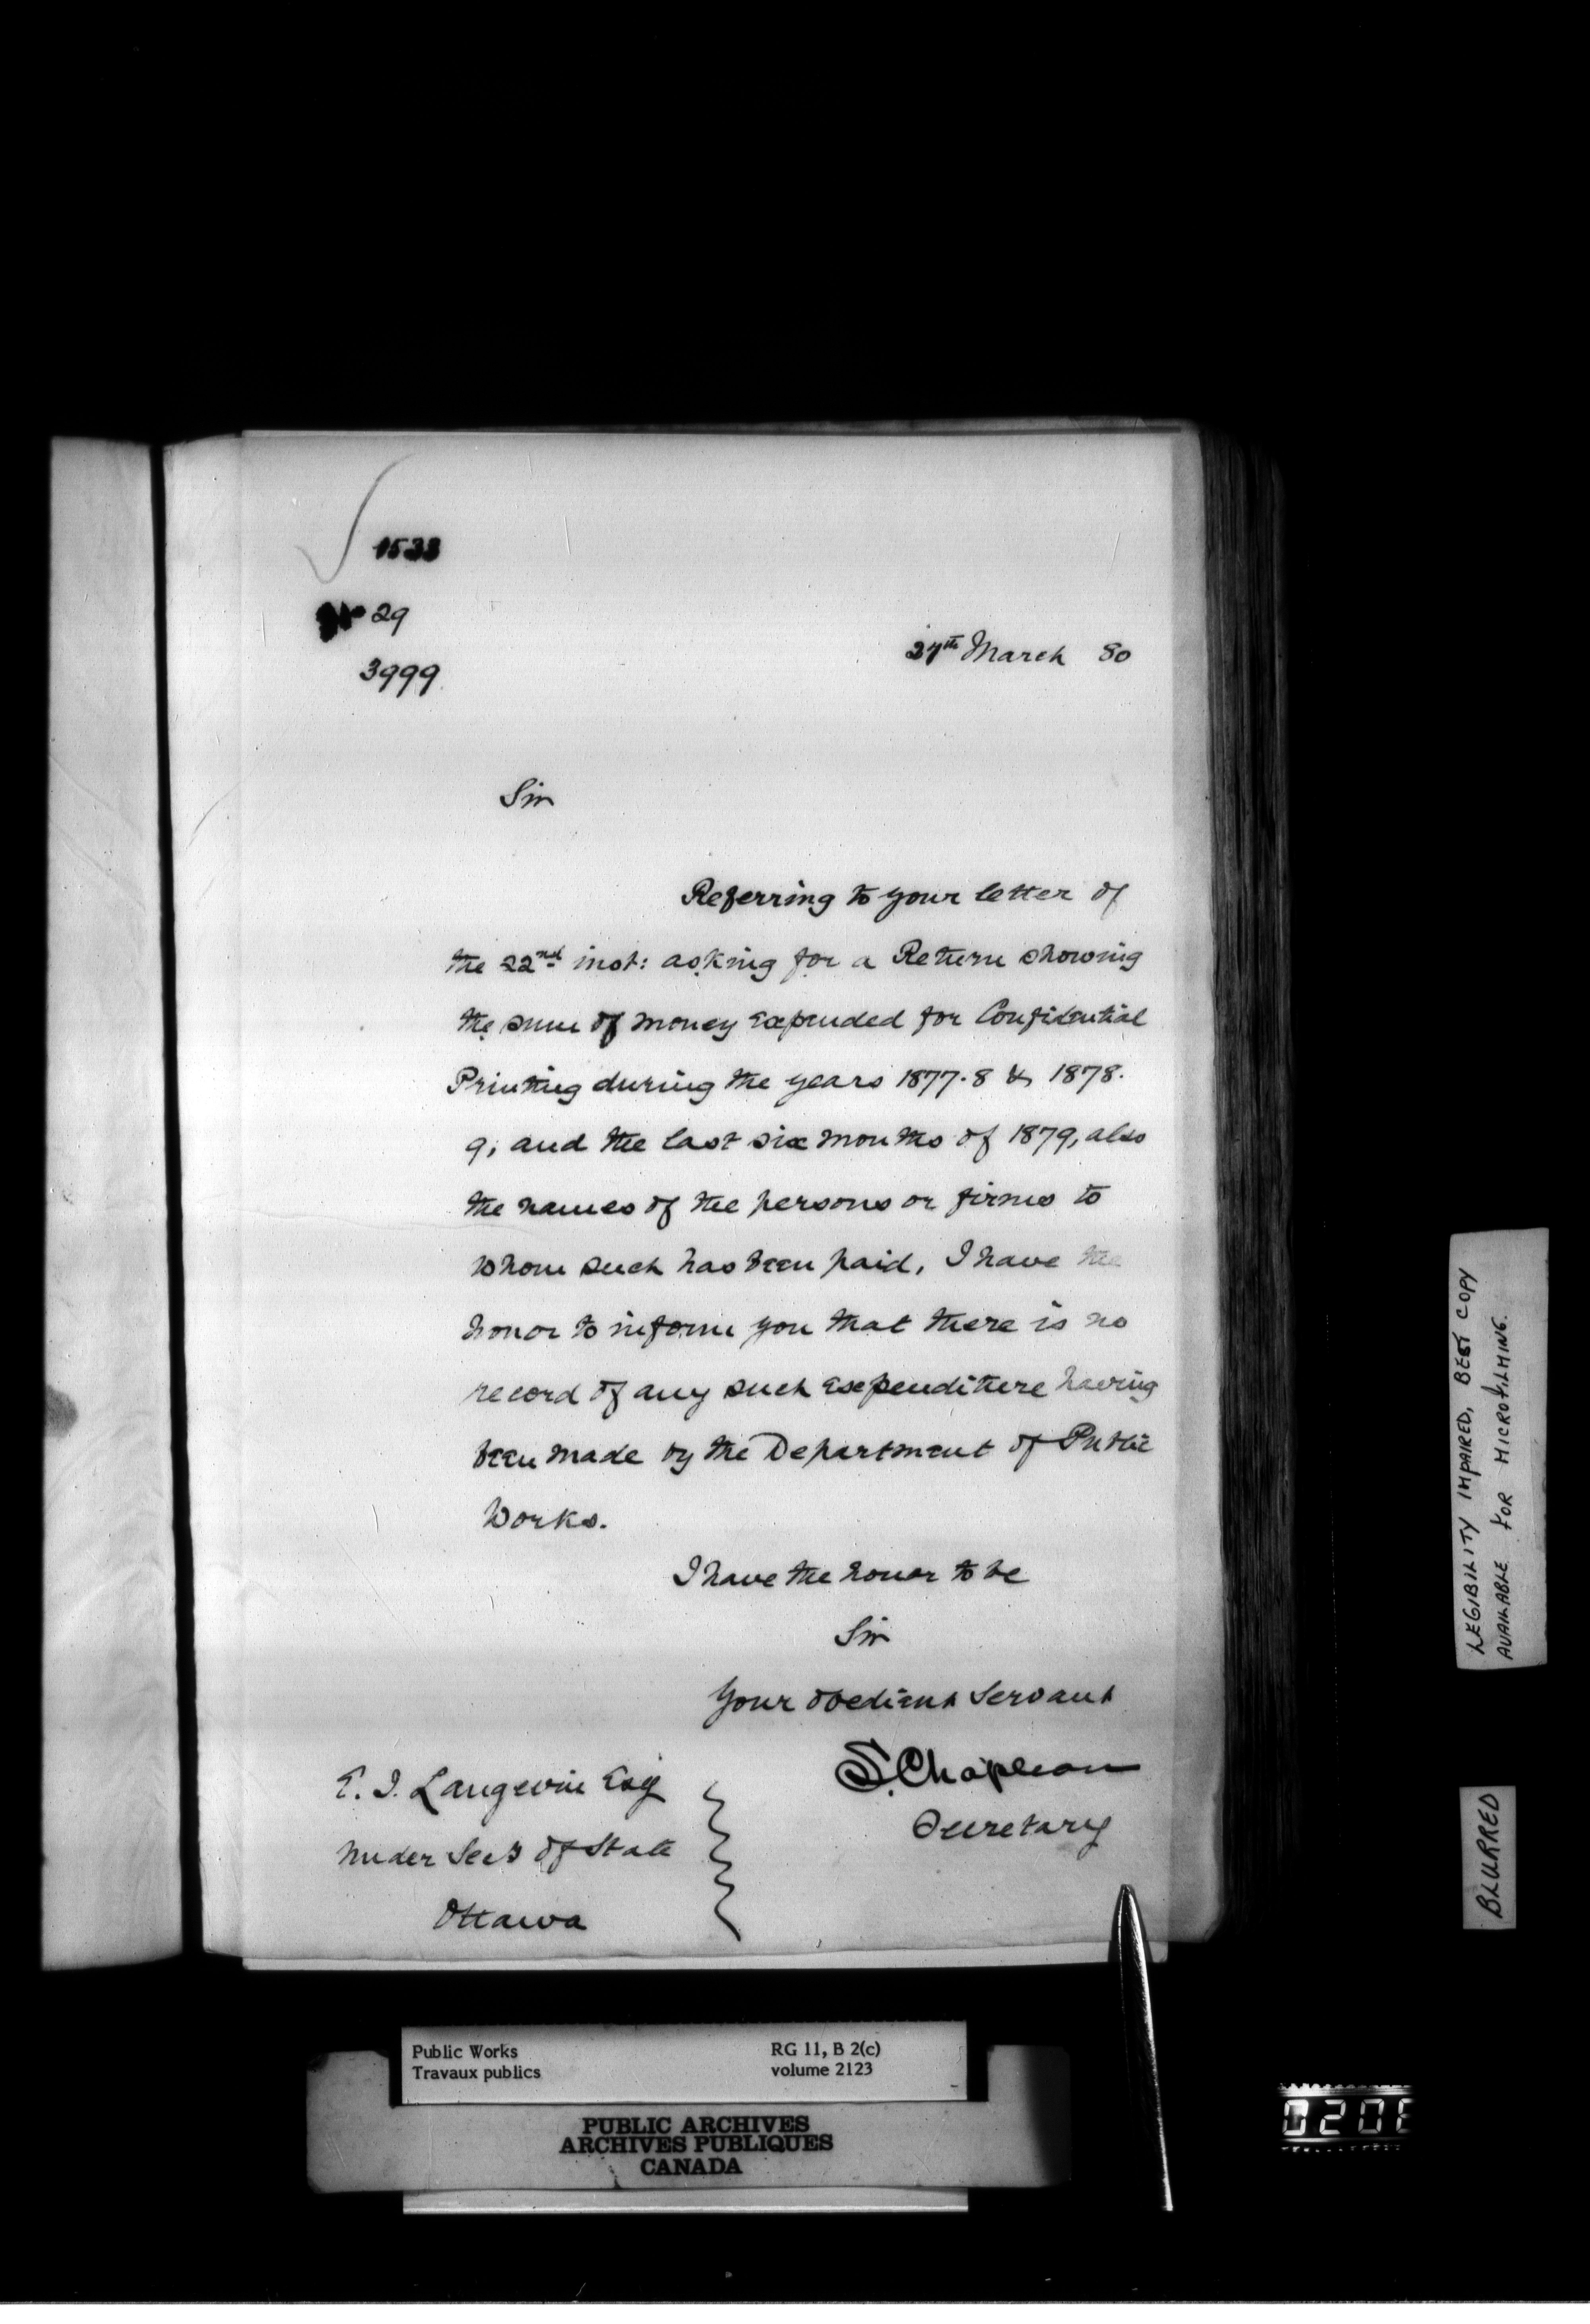 1533
No 29
3999
27th March 80
Sir
Referring to your letter of
the 22nd inst: asking for a Return showing
the sum of money expended for Confidential
Printing during the years 1877.8 & 1878.
9, and the last six months of 1879, also
the names of the persons or firms to
whom such has been paid, I have the
honor to inform you that there is no
record of any such expenditure having
been made by the Department of Public
Works.
I have the honor to be
Sir
Your obedient Servant
S. Chapleau
Secretary
E. J. Langevin Esq
Under Secy of State
Ottawa
LEGIBILITY IMPAIRED, BEST COPY
AVAILABLE FOR MICROFILMING.
BLURRED
Public Works RG 11, B 2(c)
Travaux publics volume 2123
PUBLIC ARCHIVES
ARCHIVES PUBLIQUES
CANADA